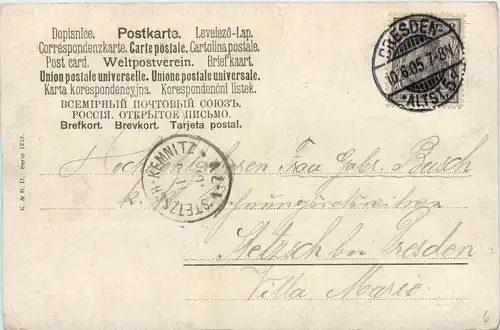 Dopisnice. Postkarte. Levelező-Lap.
Correspondenzkarte. Carte postale. Cartolina postale.
Post card. Weltpostverein. Briefkaart.
Union postale universelle. Unione postale universale.
Karta korespondencyjna. Korespondenční listek.
ВСЕМІРНЫЙ ПОЧТОВЫЙ СОЮЗЪ.
РОССІЯ. ОТКРЫТОЕ ПИСЬМО.
Brefkort. Brevkort. Tarjeta postal.
DRESDEN-
10.6.05. 7-8V
*ALTST.
STETZSCH-KEMNITZ
K. & B. D. Serie
Frau Gabr. Busch
k.
Stetzsch bei Dresden
Villa Marie
6